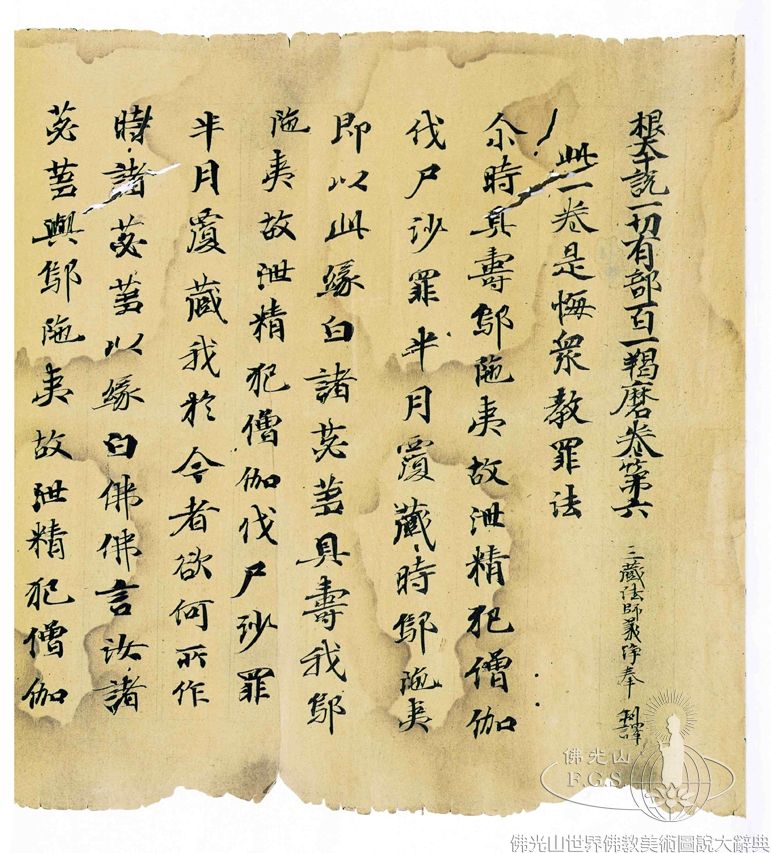 根本說一切有部百一羯磨卷第六 三藏法師義淨奉 制譯
此一卷是悔衆教罪法
尒時具壽鄔陁夷故泄精犯僧伽
伐尸沙罪半月覆藏時鄔陁夷
即以此緣白諸苾蒭具壽我鄔
陁夷故泄精犯僧伽伐尸沙罪
半月覆藏我於今者欲何所作
時諸苾蒭以緣白佛佛言汝諸
苾蒭與鄔陁夷故泄精犯僧伽
佛光山
F.G.S
佛光山世界佛教美術圖說大辭典